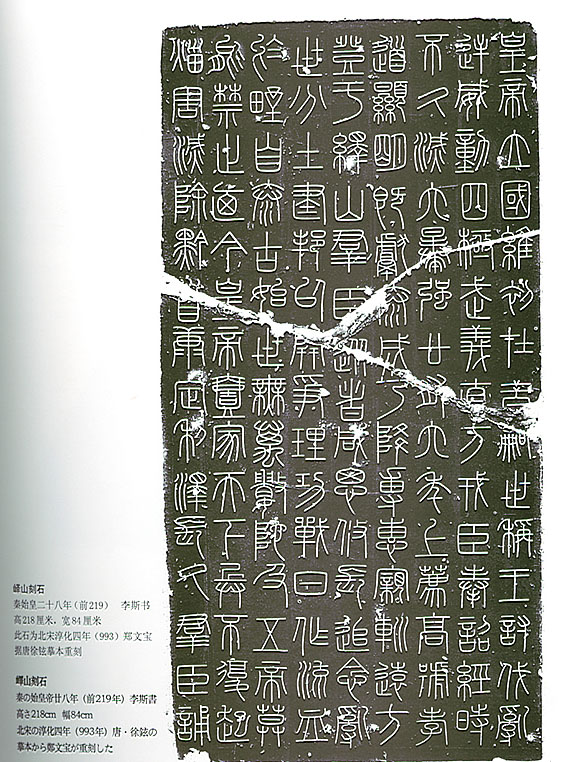 皇帝立國維初在昔嗣世稱王討伐亂
逆威動四極武義直方戎臣奉詔經時
不久滅六暴強廿有六年上薦高號孝
道顯明既獻泰成乃降專惠寴䡅遠方
登于繹山羣臣從者咸思攸長追念亂
世分土建邦以開爭理功戰日作流血
於野自泰古始世無萬數陀及五帝莫
能禁止廼今皇帝壹家天下兵不復起
災害滅除黔首康定利澤長久羣臣誦
峄山刻石
秦始皇二十八年（前219） 李斯书
高218厘米，宽84厘米
此石为北宋淳化四年（993）郑文宝
据唐徐铉摹本重刻
嶧山刻石
秦の始皇帝廿八年（前219年）李斯書
高さ218cm 幅84cm
北宋の淳化四年（993年）唐・徐鉉の
摹本から鄭文宝が重刻した